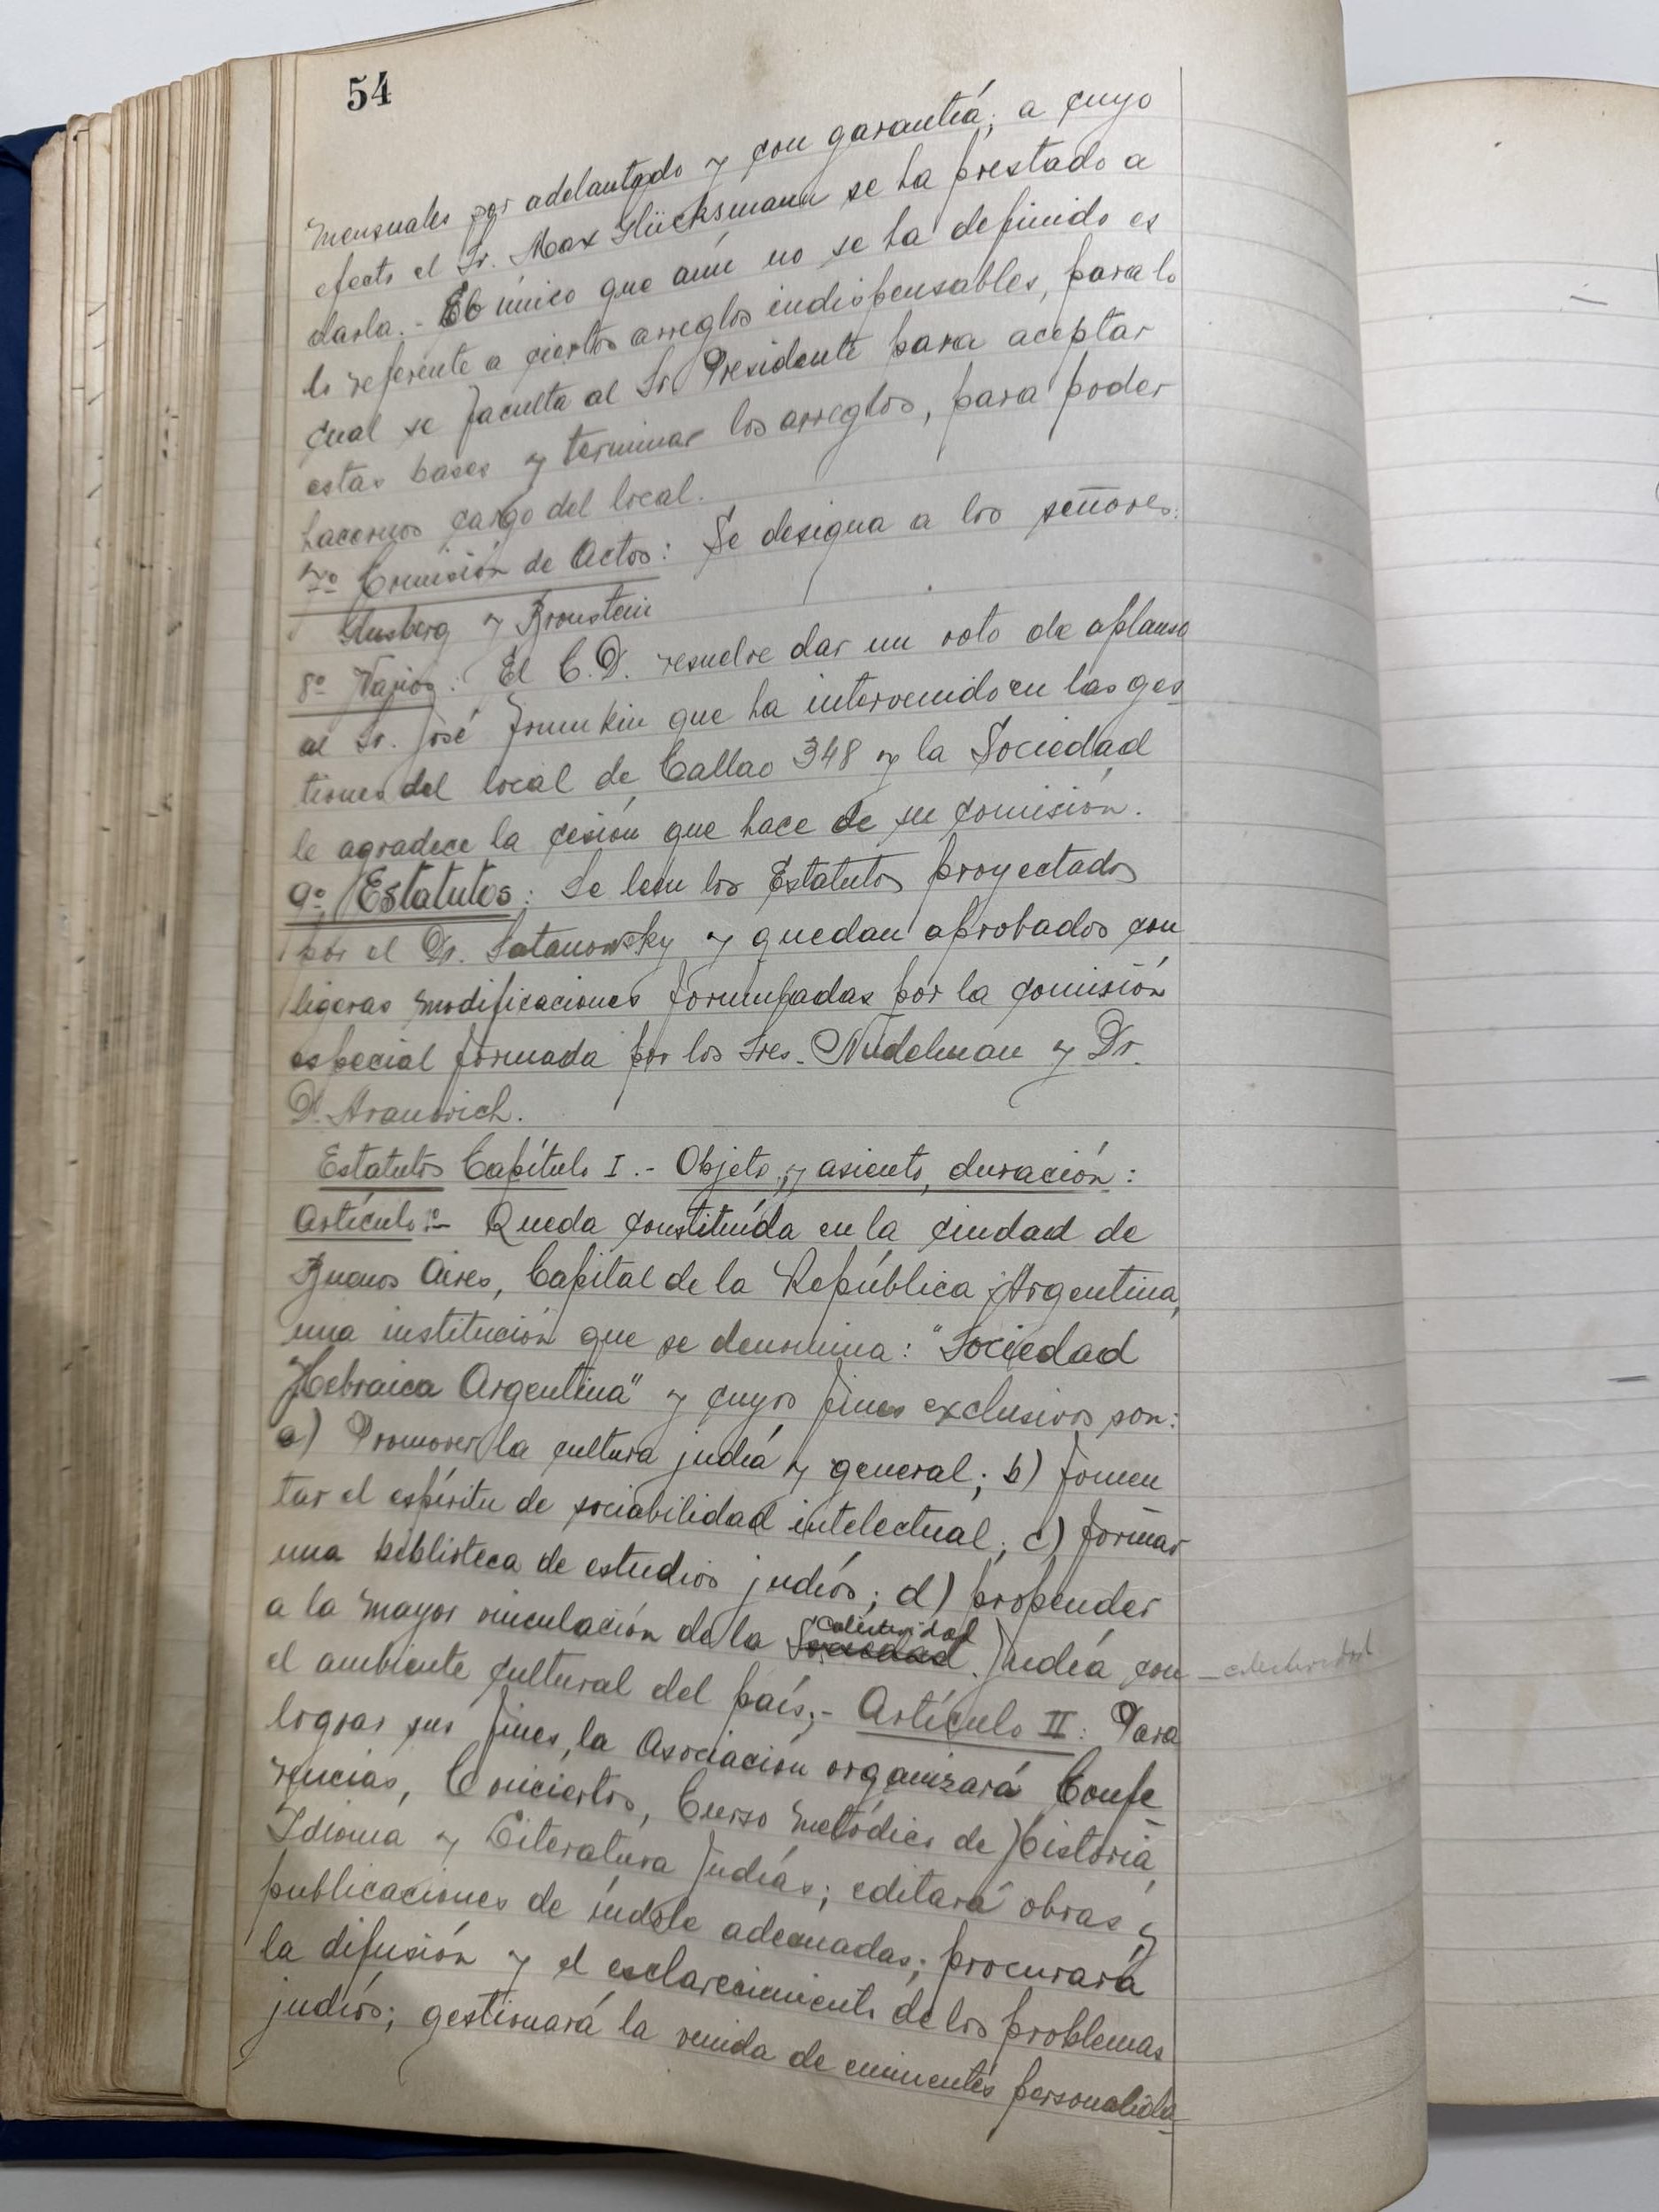 54
mensuales por adelantado y con garantía; a cuyo
efecto el Sr. Max Glücksmann se ha prestado a
darla.- El único que aún no se ha definido es
lo referente a ciertos arreglos indispensables, para lo
cual se faculta al Sr. Presidente para aceptar
estas bases y terminar los arreglos, para poder
hacernos cargo del local.
7º Comisión de Actos: Se designa a los señores:
Glusberg y Bronstein
8º Varios: El C.D. resuelve dar un voto de aplauso
al Sr. José Frumkin que ha intervenido en las ges
tiones del local de Callao 348 y la Sociedad
le agradece la cesión que hace de su comisión.
9º Estatutos: Se leen los Estatutos proyectados
por el Dr. Satanowsky y quedan aprobados con
ligeras modificaciones formuladas por la comisión
especial formada por los Sres. Nudelman y Dr.
D. Aranovich.
Estatutos Capítulo I.- Objeto, y asiento, duración:
Artículo 1º- Queda constituída en la ciudad de
Buenos Aires, Capital de la República Argentina,
una institución que se denomina: "Sociedad
Hebraica Argentina" y cuyos fines exclusivos son:
a) Promover la cultura judía y general; b) fomen
tar el espíritu de sociabilidad intelectual; c) formar
una biblioteca de estudios judíos; d) propender
colectividad
a la mayor vinculación de la Sociedad Judía con - colectividad
el ambiente cultural del país;- Artículo II: Para
lograr sus fines, la Asociación organizará Confe
rencias, Conciertos, Curso metódico de Historia,
Idioma y Literatura Judías; editará obras y
publicaciones de índole adecuadas; procurará
la difusión y el esclarecimiento de los problemas
judíos; gestionará la venida de eminentes personalida-